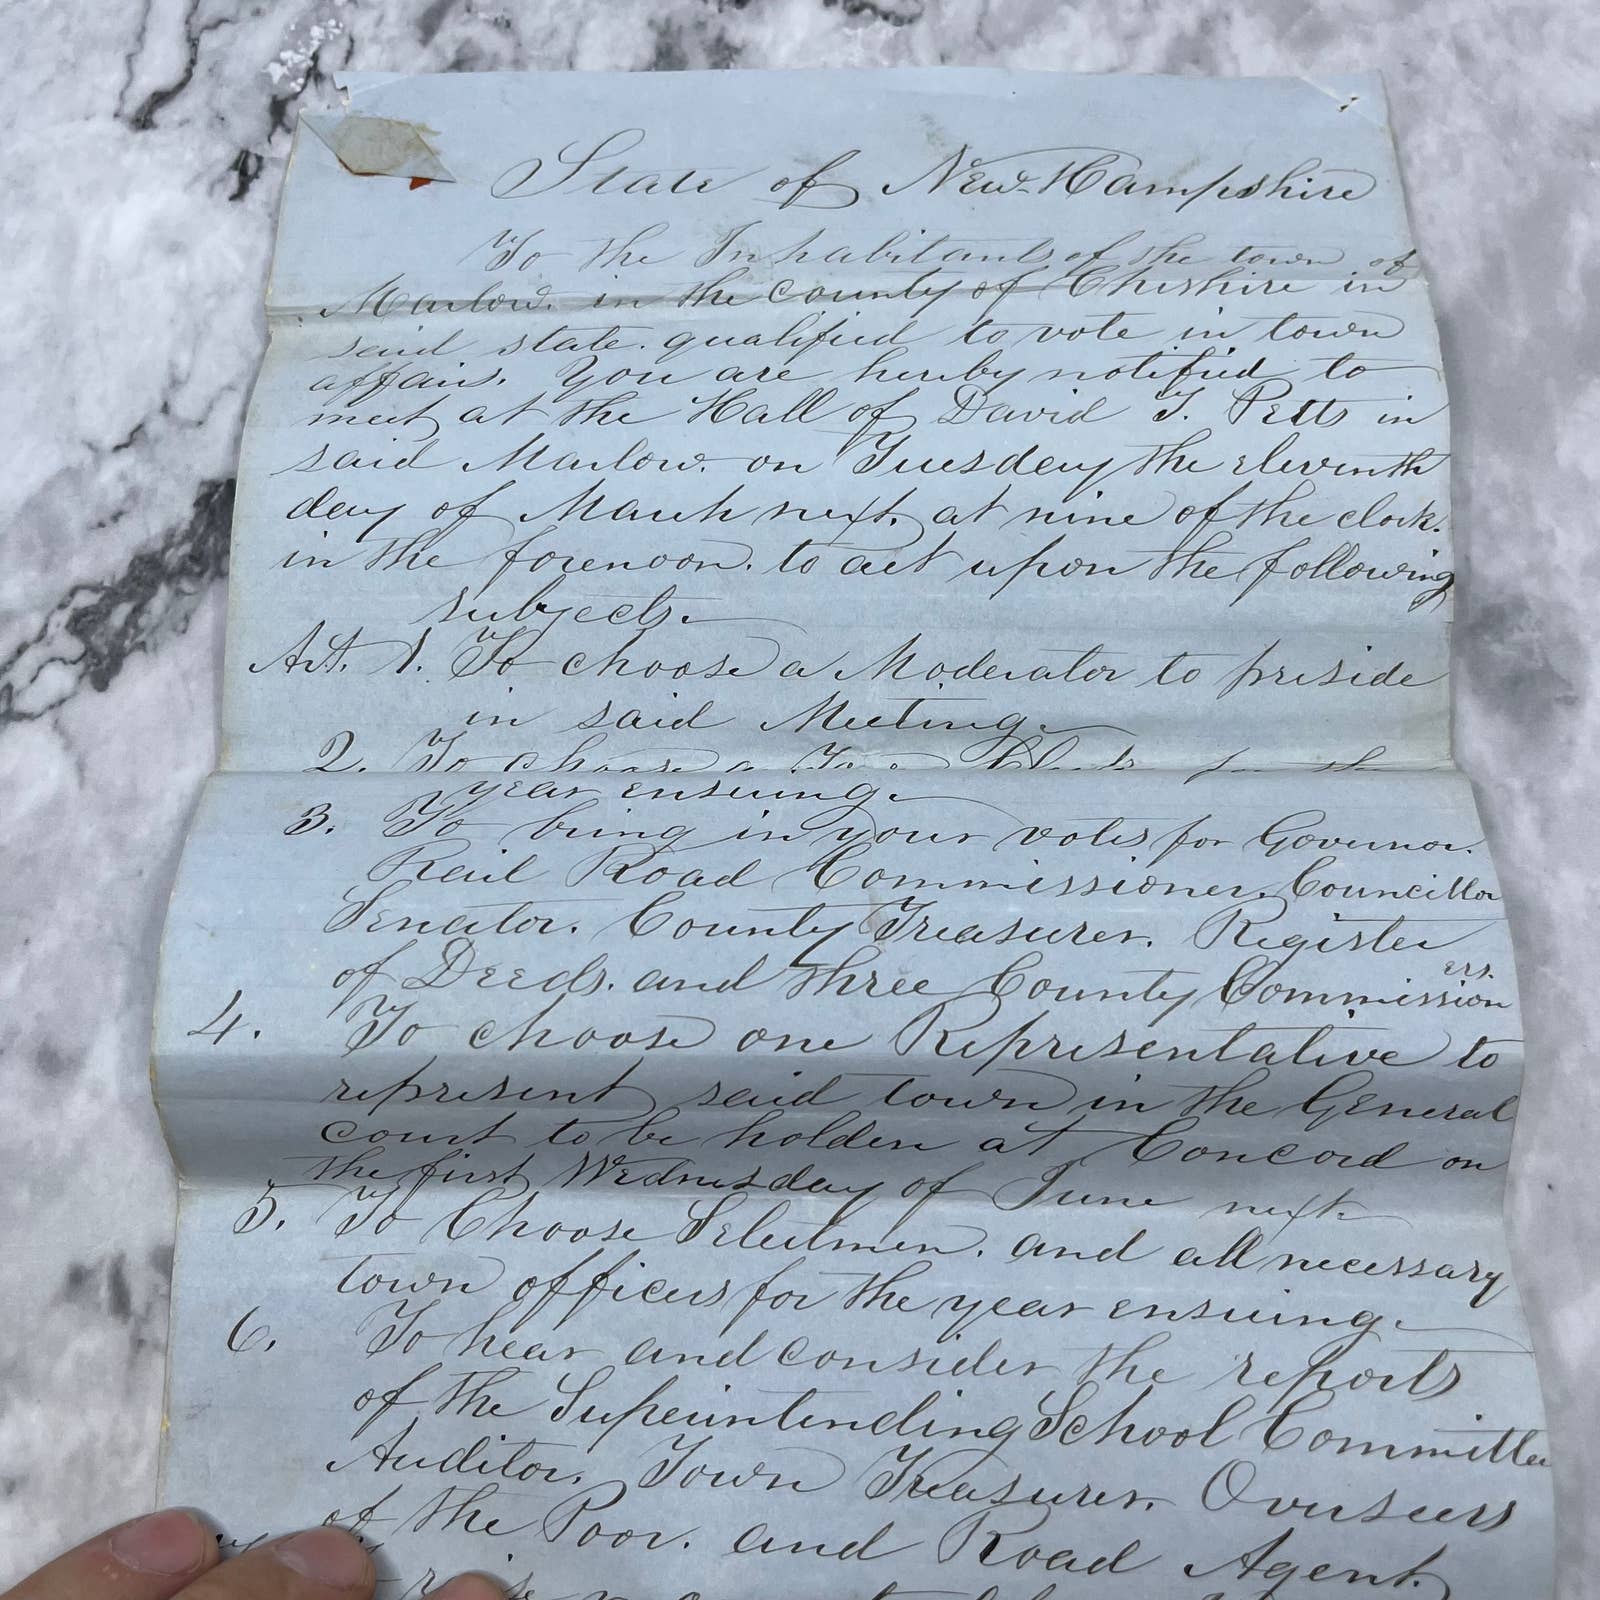 State of New-Hampshire
To the Inhabitants of the town of
Marlow. in the county of Cheshire in
said state. qualified to vote in town
affairs. You are hereby notified to
meet at the Hall of David T. Petts in
said Marlow. on Tuesday the eleventh
day of March next. at nine of the clock.
in the forenoon. to act upon the following
subjects.
Art. 1. To choose a Moderator to preside
in said Meeting.
2. To choose a Town Clerk for the
year ensuing.
3. To bring in your votes for Governor.
Rail Road Commissioner. Councillor
Senator. County Treasurer. Register
of Deeds. and three County Commissioners.
4. To choose one Representative to
represent said town in the General
court to be holden at Concord on
the first Wednesday of June next.
5. To Choose Selectmen. and all necessary
town officers for the year ensuing.
6. To hear and consider the reports
of the Superintending School Committee
Auditor. Town Treasurer. Overseers
of the Poor. and Road Agent.